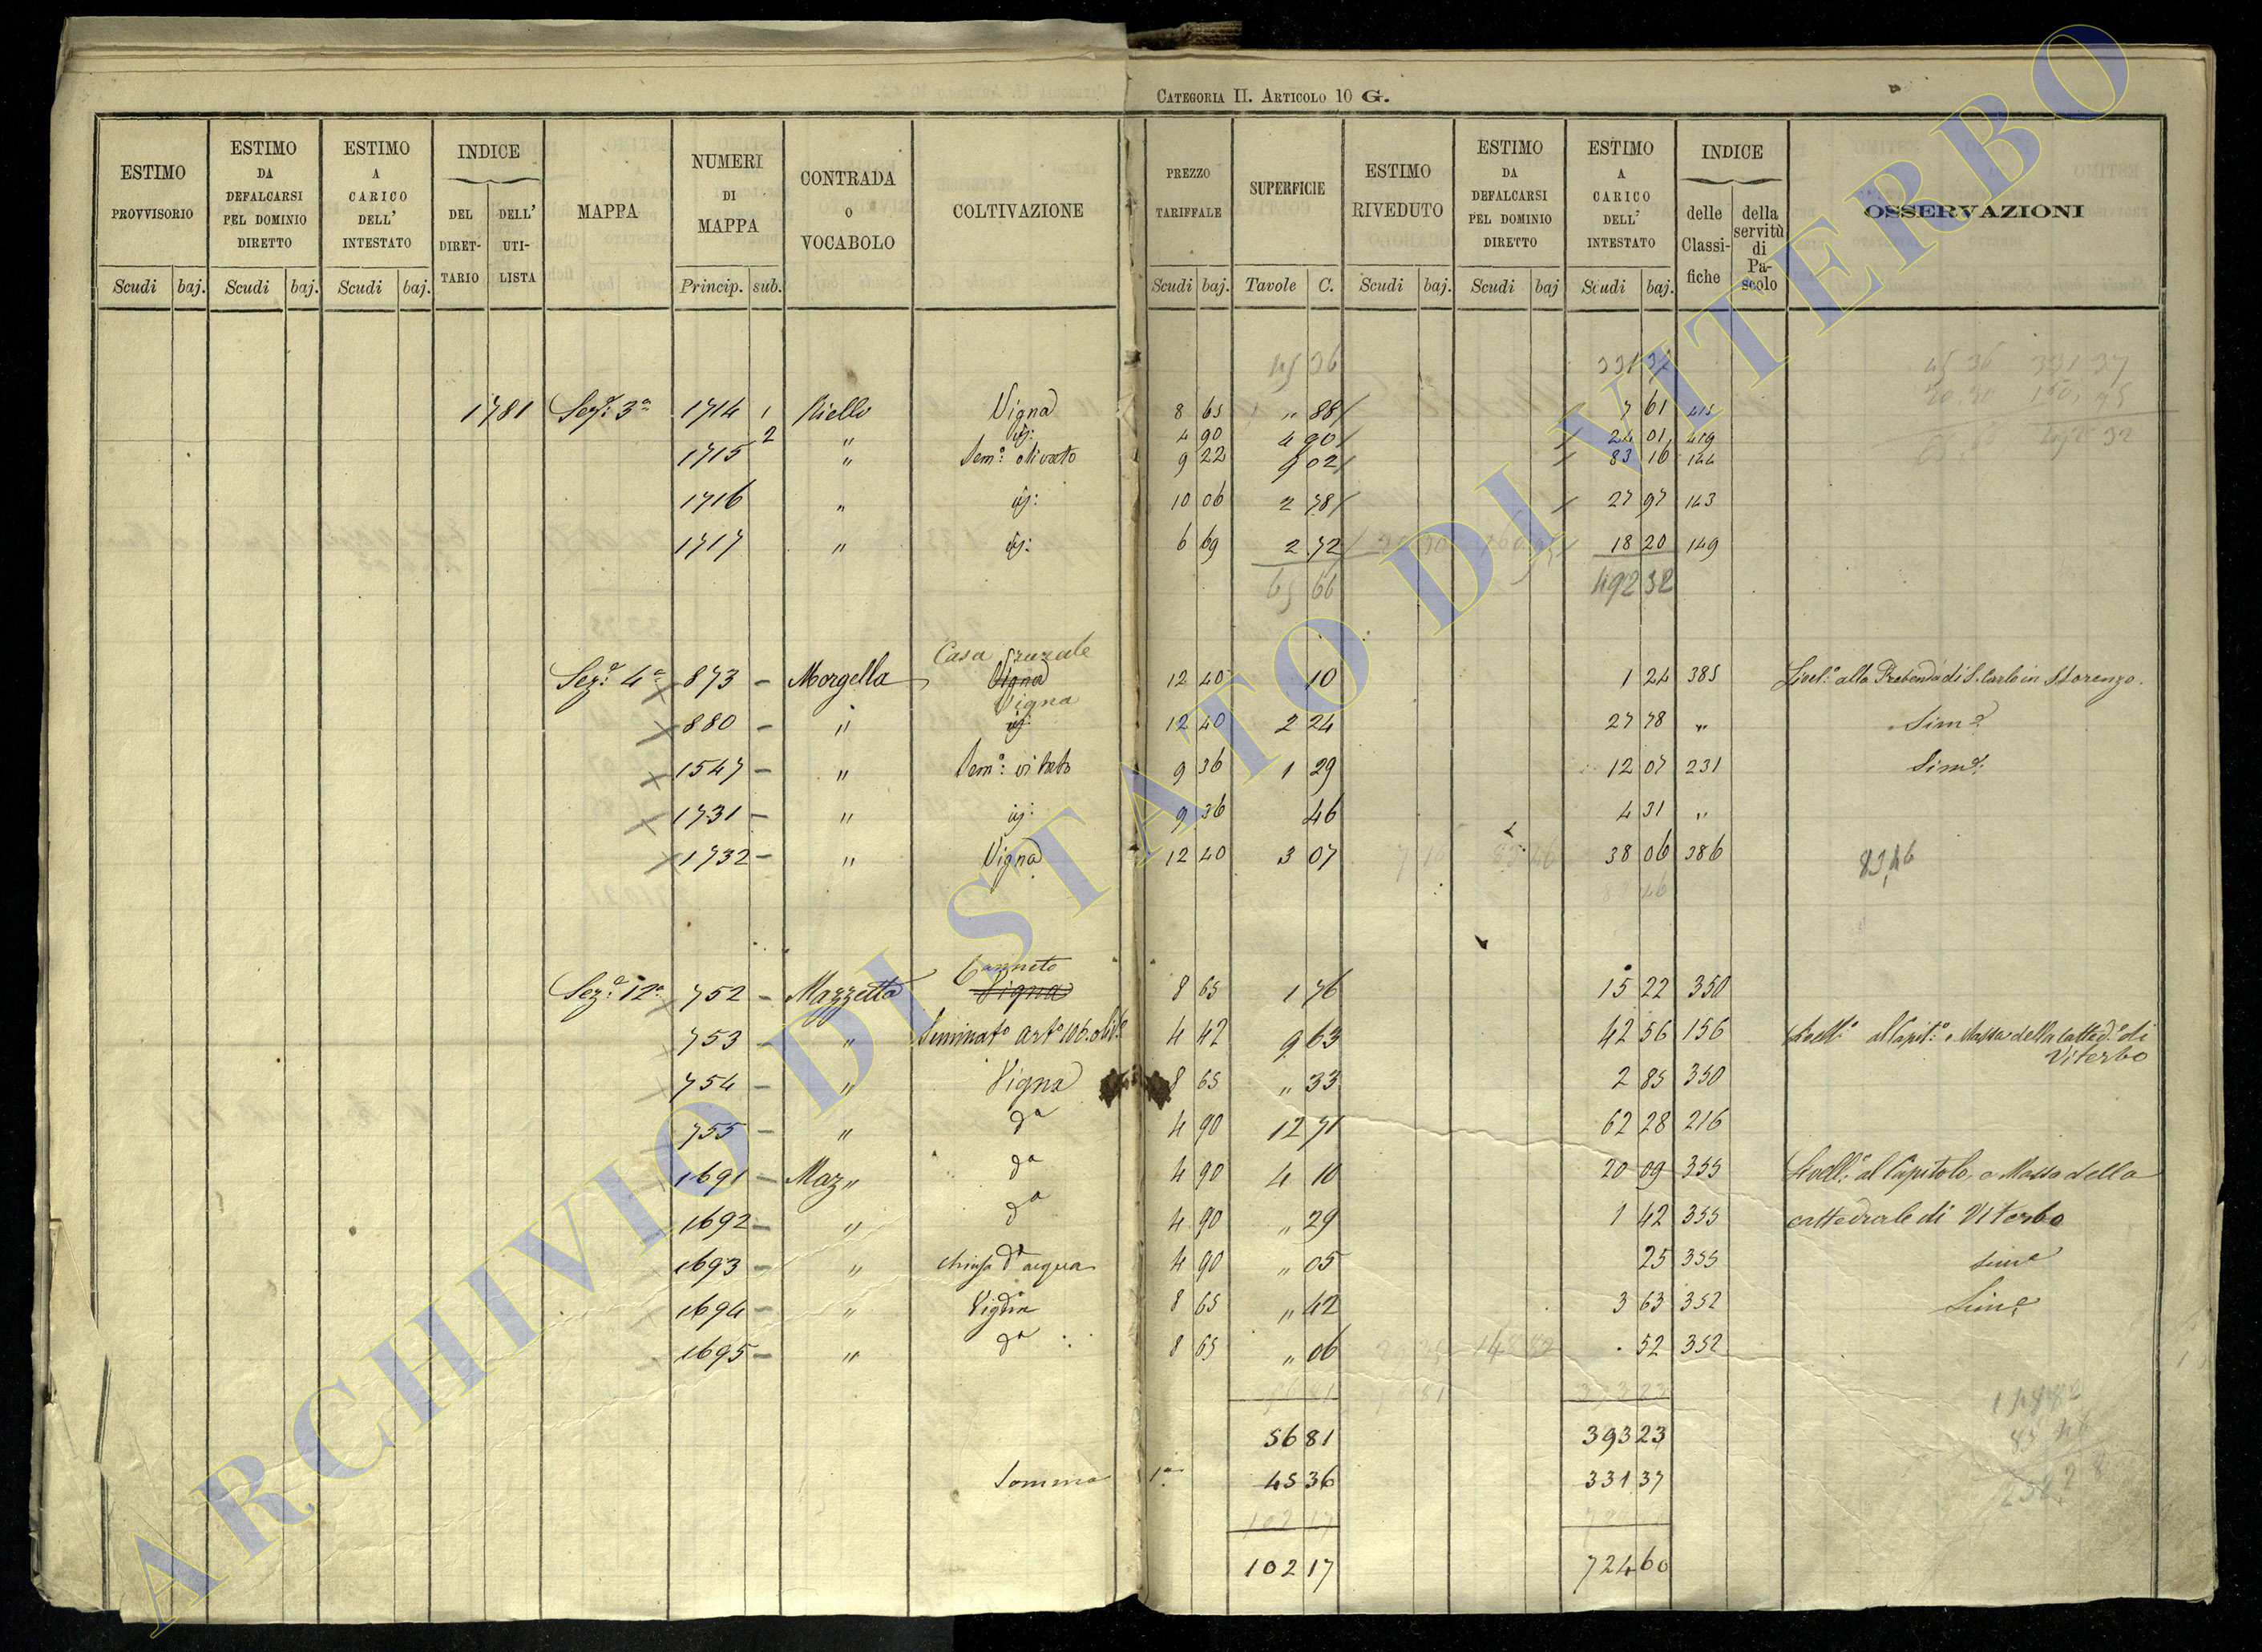 CATEGORIA II. ARTICOLO 10 G.
ESTIMO PROVVISORIO Scudi baj.
ESTIMO DA DEFALCARSI PEL DOMINIO DIRETTO Scudi baj.
ESTIMO A CARICO DELL' INTESTATO Scudi baj.
INDICE DEL DIRET-TARIO DELL' UTI-LISTA
MAPPA
NUMERI DI MAPPA Princip. sub.
CONTRADA O VOCABOLO
COLTIVAZIONE
PREZZO TARIFFALE Scudi baj.
SUPERFICIE Tavole C.
ESTIMO RIVEDUTO Scudi baj.
ESTIMO DA DEFALCARSI PEL DOMINIO DIRETTO Scudi baj
ESTIMO A CARICO DELL' INTESTATO Scudi baj.
INDICE delle Classi-fiche della servitù di Pa-scolo
OSSERVAZIONI
45 36 331 37 45 36 331 37
1781 Sez.e 3a 1714 1 Riello Vigna 8 65 " 88 7 61 415
2 " id: 4 90 4 90 24 01 419
1715 " Sem.o olivato 9 22 9 02 83 16 144
1716 " id: 10 06 2 78 27 97 143
1717 " id: 6 69 2 72 18 20 149
65 66 492 32
Casa rurale
Sez.e 4a 873 - Morgella Vigna 12 40 10 1 24 385 Livel.o alla Prebenda di S. Carlo in S Lorenzo.
Vigna
880 - " id: 12 40 2 24 27 78 " Sim.e
1547 - " Sem.o vitato 9 36 1 29 12 07 231 Sim.e
1731 - " id: 9 36 46 4 31 "
1732 - " Vigna 12 40 3 07 38 06 386 83,46
Canneto
Sez.e 12a 752 - Mazzetta Vigna 8 65 1 76 15 22 350
753 - " Seminat.o 4 42 9 63 42 56 156 Livell.o al Capit.o e Massa della Catted.e di
Viterbo
754 - " Vigna 8 65 " 33 2 85 350
755 - " da 4 90 12 71 62 28 216
1691 - Maz " da 4 90 4 10 20 09 355 Livell.o al Capitolo, e Massa della
1692 - " da 4 90 " 29 1 42 355 cattedrale di Viterbo
1693 - " chiusa d'acqua 4 90 " 05 25 355 sim.e
1694 - " Vigna 8 65 " 42 3 63 352 Sim.e
1695 - " da 8 65 " 06 52 352
56 81 393 23
Somma 1a 45 36 331 37
102 17 724 60
ARCHIVIO DI STATO DI VITERBO